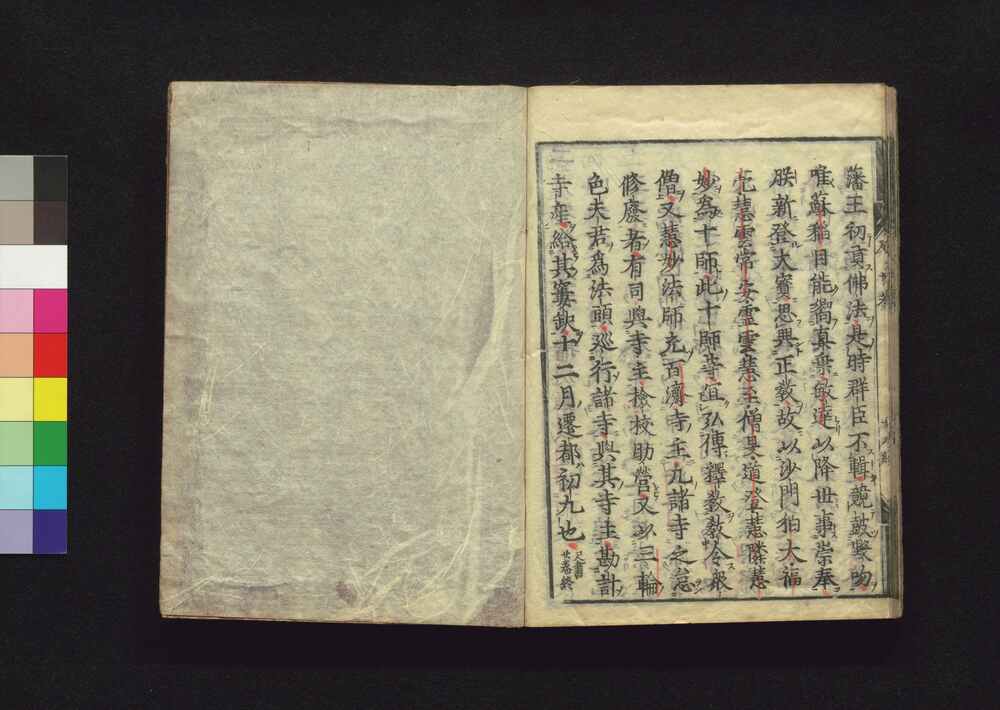 藩王初貢佛法是時群臣不輯競鼓斃吻
唯蘇稲目能獨真乗敏達以降世事崇奉
朕新登大寶思興正教故以沙門狛大福
亮慧雲常安霊雲慧至僧旻道登慧隣慧
妙為十師此十師等宜弘傳釋教教令衆
僧又慧妙法師充百濟寺主凢諸寺之怠
修廢者有司與寺主撿校助營又以三輪
色夫君為法頭廵行諸寺與其寺主勘計
寺産給其窶缺十二月遷都初九也
尺書
廿巻終